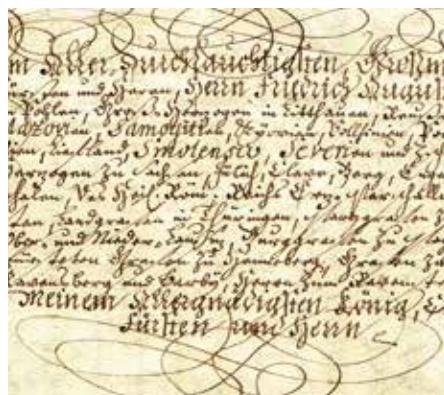 m Aller Durchlauchtigsten, Großm
von und Herrn, Herrn Friedrich August
Pohlen, Groß Hertzogen in Litthauen, Reus
Mazovien, Samogitien, Kyovien, Vollhinien, Po
ien, Liefland, Smolensko, Severien und
ertzogen zu Sachßen, Jülich, Cleve, Berg, E
phalen, des Heil. Röm. Reichs Ertz-Marschall
Landgraffen in Thüringen, Marggraffen
Ober- und Nieder-Lausitz, Burggraffen zu Ma
teten Graffen zu Henneberg, Graffen zu
avensberg und Barby, Herrn zum Ravenst
Meinem Allergnädigsten König, C
Fürsten und Herrn